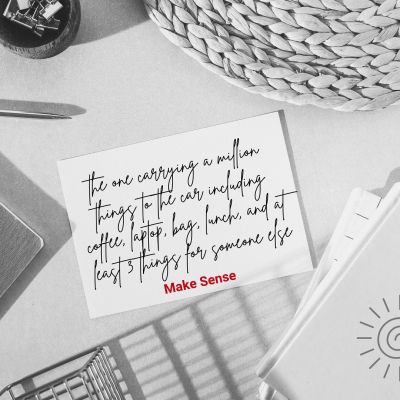 the one carrying a million
things to the car including
coffee, laptop, bag, lunch, and at
least 3 things for someone else
Make Sense